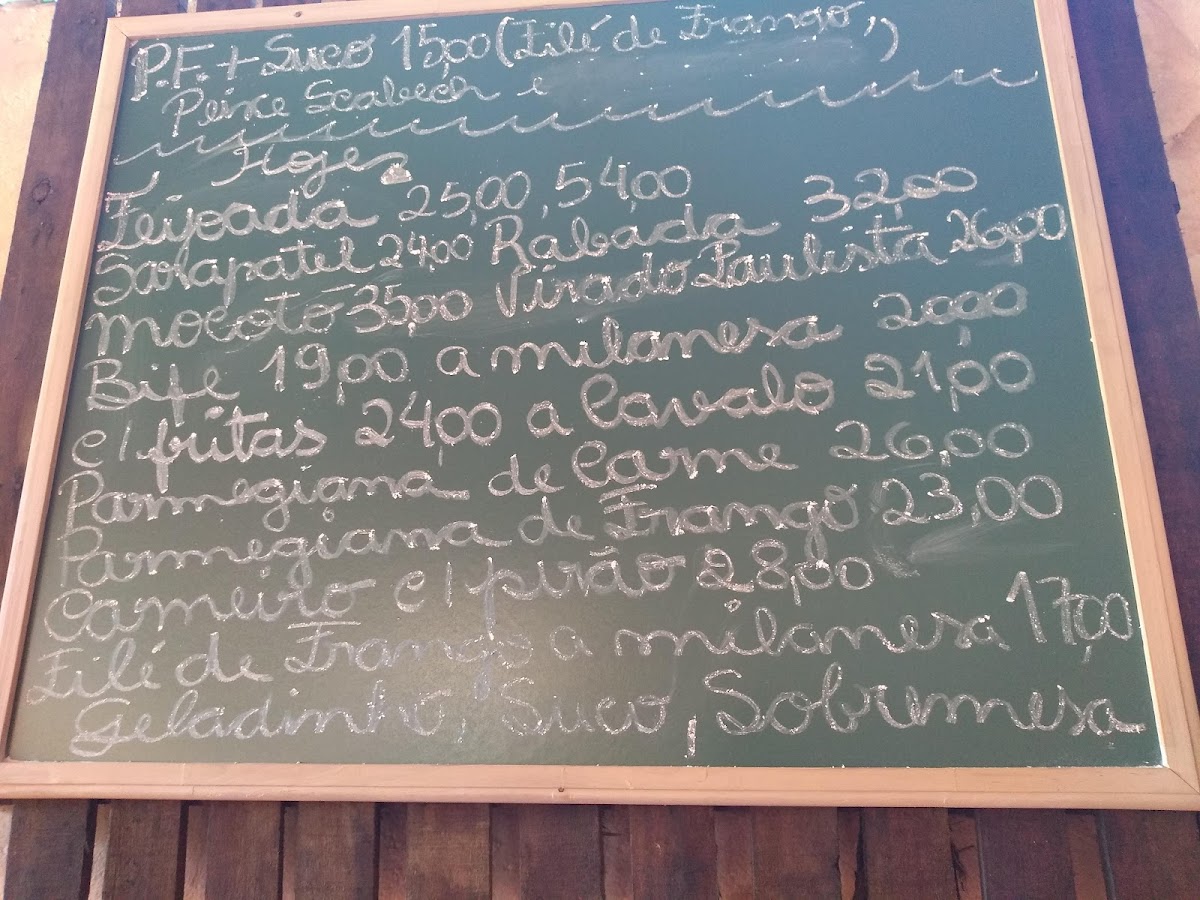 P.F. + Suco 15,00 (Filé de Frango,)
Peixe Scabech e
Hoje
Feijoada 25,00, 54,00
Sarapatel 24,00 Rabada 32,00
Mocotó 35,00 Virado Paulista 26,00
Bife 19,00 a milanesa 20,00
c/ fritas 24,00 a Cavalo 21,00
Parmegiana de Carne 26,00
Parmegiana de Frango 23,00
Carneiro c/ pirão 28,00
Filé de Frango a milanesa 17,00
Geladinho, Suco, Sobremesa